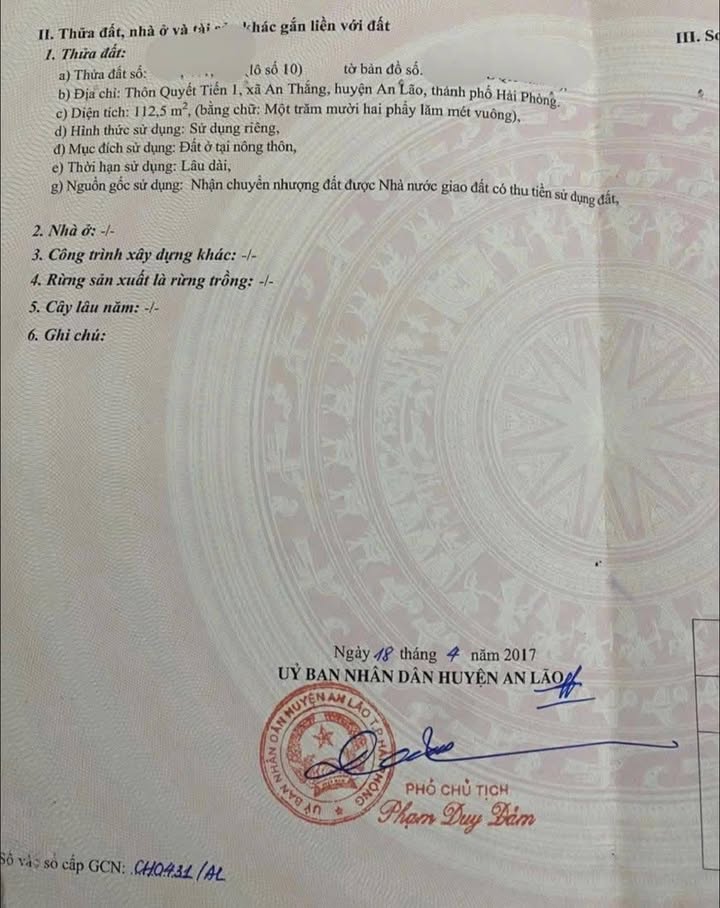 II. Thửa đất, nhà ở và tài khác gắn liền với đất
III. Sơ
1. Thửa đất:
a) Thửa đất số: lô số 10) tờ bản đồ số.
b) Địa chỉ: Thôn Quyết Tiến 1, xã An Thắng, huyện An Lão, thành phố Hải Phòng.
c) Diện tích: 112,5 m², (bằng chữ: Một trăm mười hai phẩy lăm mét vuông),
d) Hình thức sử dụng: Sử dụng riêng,
đ) Mục đích sử dụng: Đất ở tại nông thôn,
e) Thời hạn sử dụng: Lâu dài,
g) Nguồn gốc sử dụng: Nhận chuyển nhượng đất được Nhà nước giao đất có thu tiền sử dụng đất,
2. Nhà ở: -/-
3. Công trình xây dựng khác: -/-
4. Rừng sản xuất là rừng trồng: -/-
5. Cây lâu năm: -/-
6. Ghi chú:
Ngày 18 tháng 4 năm 2017
UỶ BAN NHÂN DÂN HUYỆN AN LÃO
UỶ BAN NHÂN DÂN HUYỆN AN LÃO T.P HẢI PHÒNG
PHÓ CHỦ TỊCH
Phạm Duy Đảm
Số vào sổ cấp GCN: CH0431/AL